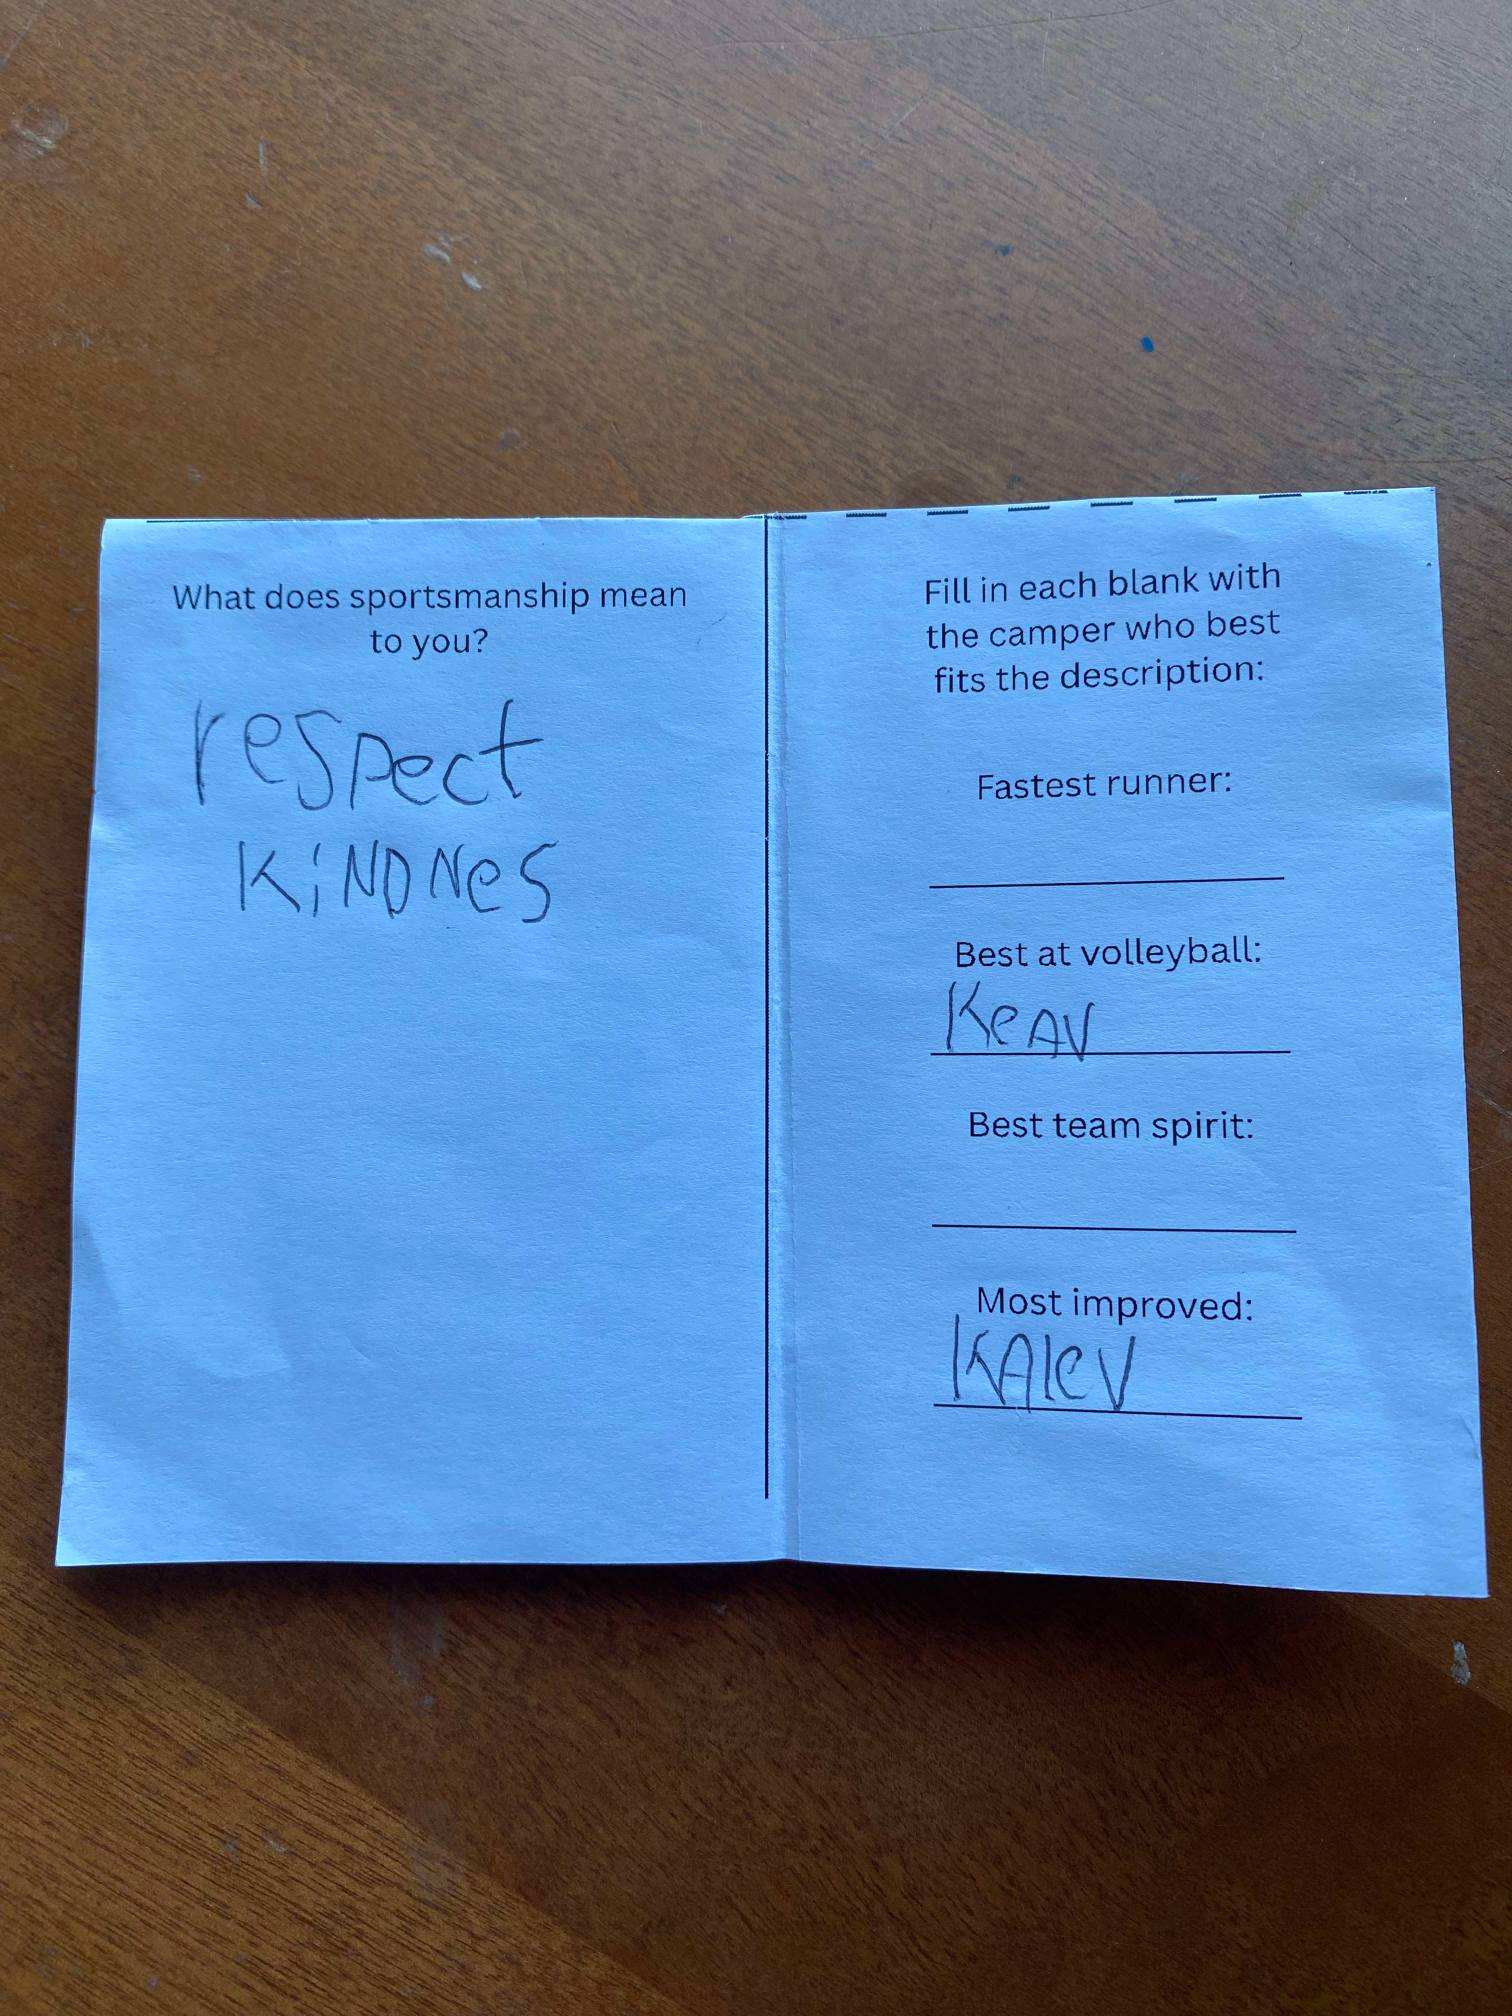 What does sportsmanship mean
to you?
respect
KiNDNes
Fill in each blank with
the camper who best
fits the description:
Fastest runner:
Best at volleyball:
KeAV
Best team spirit:
Most improved:
KAleV